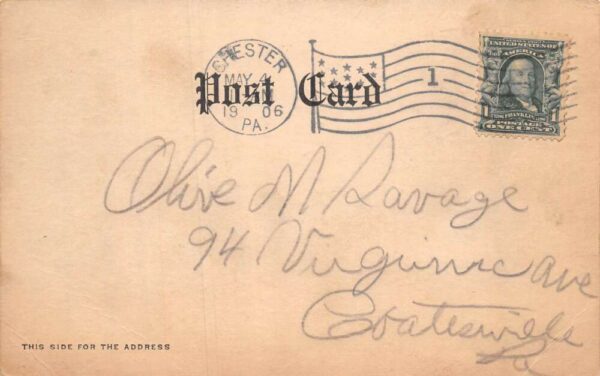 CHESTER
MAY 4
19 06
PA.
1
Post Card
UNITED STATES OF
AMERICA
FRANKLIN
POSTAGE
ONE CENT
Olive M Savage
94 Virginia Ave
Coatesville
Pa
THIS SIDE FOR THE ADDRESS